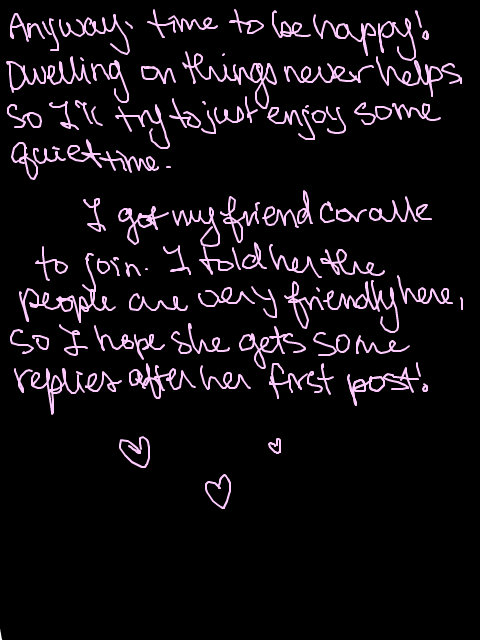 Anyway. time to be happy!
Dwelling on things never helps,
so I'll try to just enjoy some
quiet time.
I got my friend Coralle
to join. I told her the
people are very friendly here,
so I hope she gets some
replies after her first post!